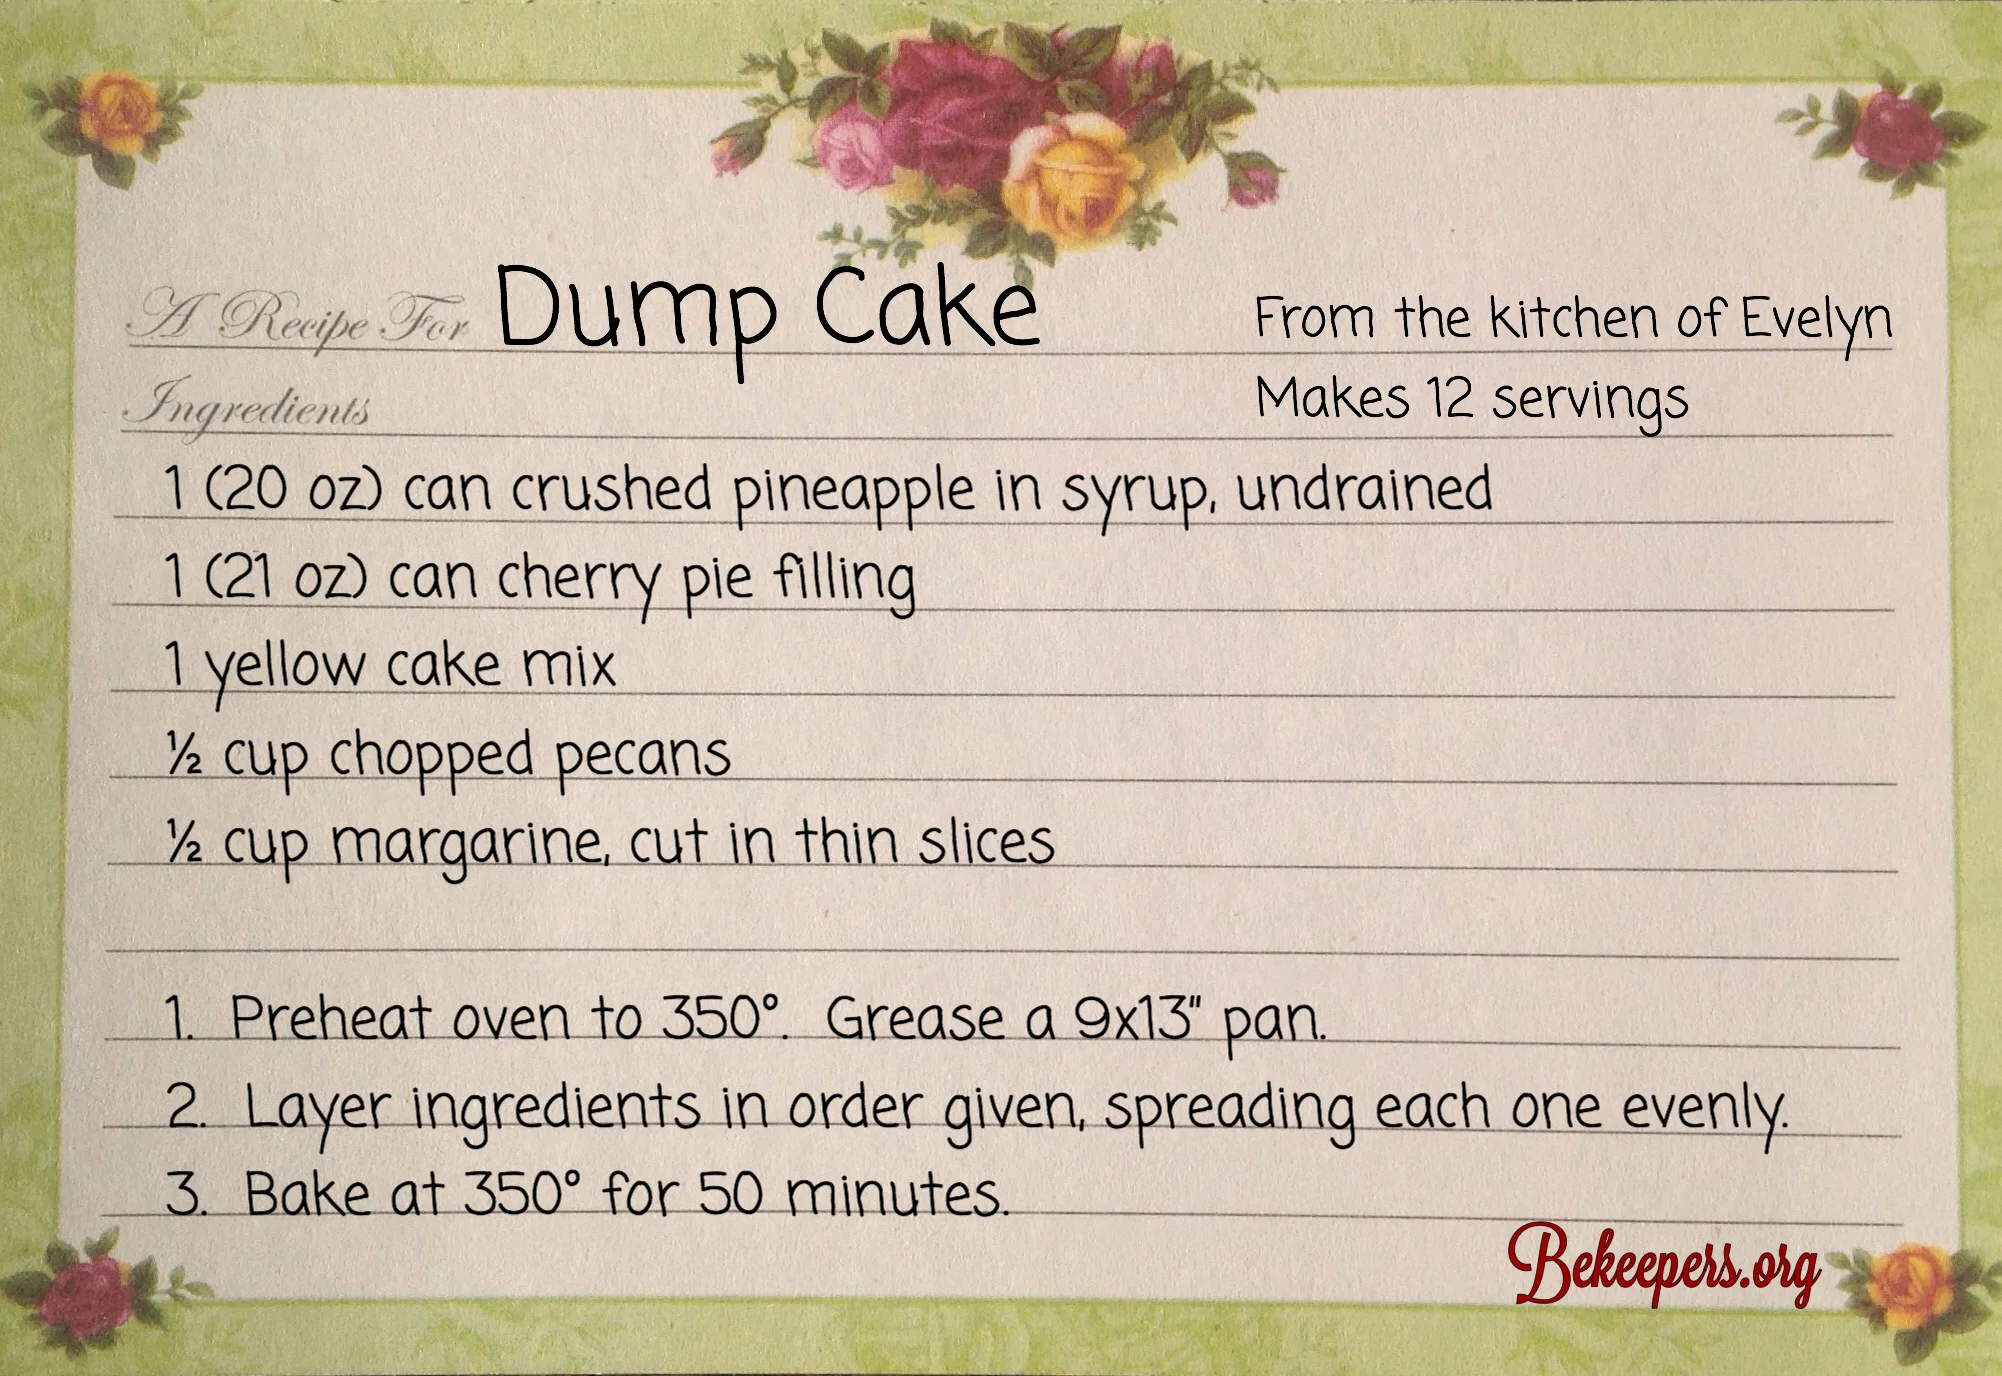 A Recipe For Dump Cake From the kitchen of Evelyn
Ingredients Makes 12 servings
1 (20 oz) can crushed pineapple in syrup, undrained
1 (21 oz) can cherry pie filling
1 yellow cake mix
½ cup chopped pecans
½ cup margarine, cut in thin slices
1. Preheat oven to 350°. Grease a 9x13" pan.
2. Layer ingredients in order given, spreading each one evenly.
3. Bake at 350° for 50 minutes.
Bekeepers.org